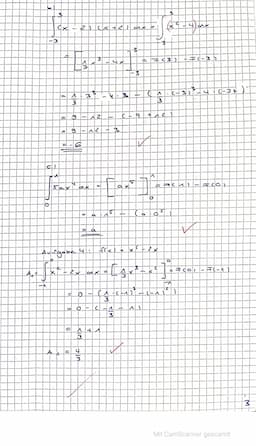 ∫₋₃³ (x - 2)(x + 2) dx = ∫₋₃³ (x² - 4) dx
= [1/3 x³ - 4x]₋₃³ = F(3) - F(-3)
= 1/3 · 3³ - 4 · 3 - (1/3 · (-3)³ - 4 · (-3))
= 9 - 12 - (-9 + 12)
= 9 - 12 - 3
= -6
c)
∫₀¹ 5ax⁴ dx = [ax⁵]₀¹ = F(1) - F(0)
= a · 1⁵ - (a · 0⁵)
= a
Aufgabe 4: f(x) = x² - 2x
A₁ = ∫₋₁⁰ x² - 2x dx = [1/3 x³ - x²]₋₁⁰ = F(0) - F(-1)
= 0 - (1/3 · (-1)³ - (-1)²)
= 0 - (-1/3 - 1)
= 1/3 + 1
A₁ = 4/3
3
Mit CamScanner gescannt